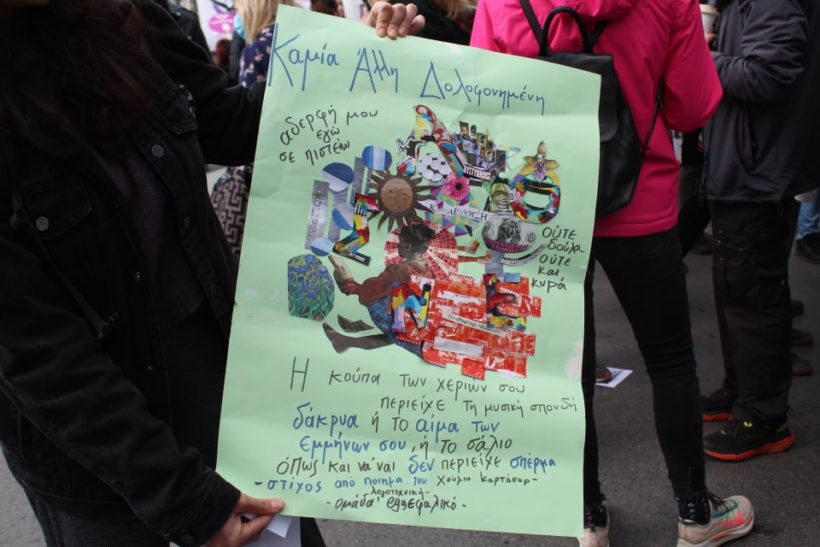 Καμία Άλλη Δολοφονημένη
αδερφή μου
εγώ
σε πιστεύω
ούτε
δούλα
ούτε
και
κυρά
Η κούπα των χεριών σου
περιείχε τη μυσική σπονδή
δάκρυα ή το αίμα των
εμμήνων σου, ή το σάλιο
όπως και να'ναι δεν περιείχε σπέρμα
- στίχος από ποιημα του Χούλιο Κορτάσαρ -
- λογοτεχνική -
ομάδα